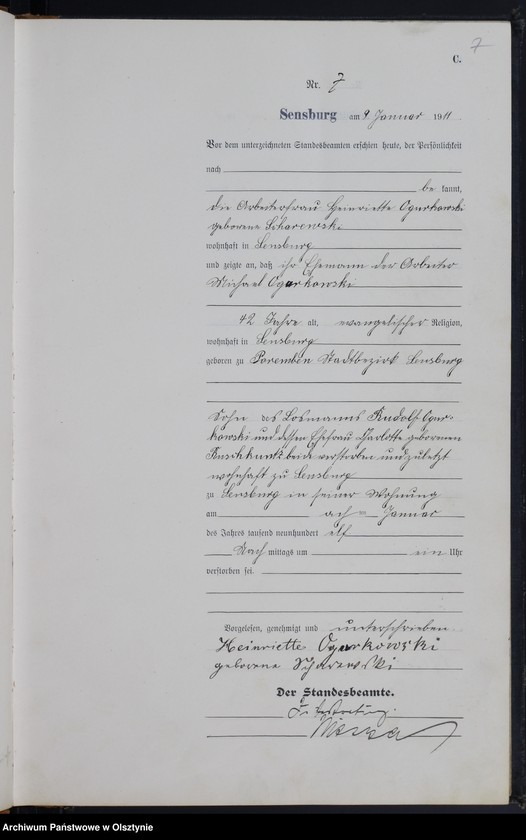 7
C.
Nr. 7
Sensburg am 9 Januar 1911
Vor dem unterzeichneten Standesbeamten erschien heute, der Persönlichkeit
nach
be kannt,
die Arbeiterfrau Heinriette Ogurkowski
geborene Scharewski
wohnhaft in Sensburg
und zeigte an, daß ihr Ehemann der Arbeiter
Michael Ogurkowski
42 Jahre alt, evangelischer Religion,
wohnhaft in Sensburg
geboren zu Poremben Stadtbezirk Sensburg
Sohn des Losmanns Rudolf Ogur-
kowski und dessen Ehefrau Charlotte geborenen
beide verstorben und zuletzt
wohnhaft zu Sensburg
zu Sensburg in seiner Wohnung
am acht Januar
des Jahres tausend neunhundert elf
Nach mittags um ein Uhr
verstorben sei.
Vorgelesen, genehmigt und unterschrieben
Heinriette Ogurkowski
geborene Scharewski
Der Standesbeamte.
In Vertretung.
Archiwum Państwowe w Olsztynie